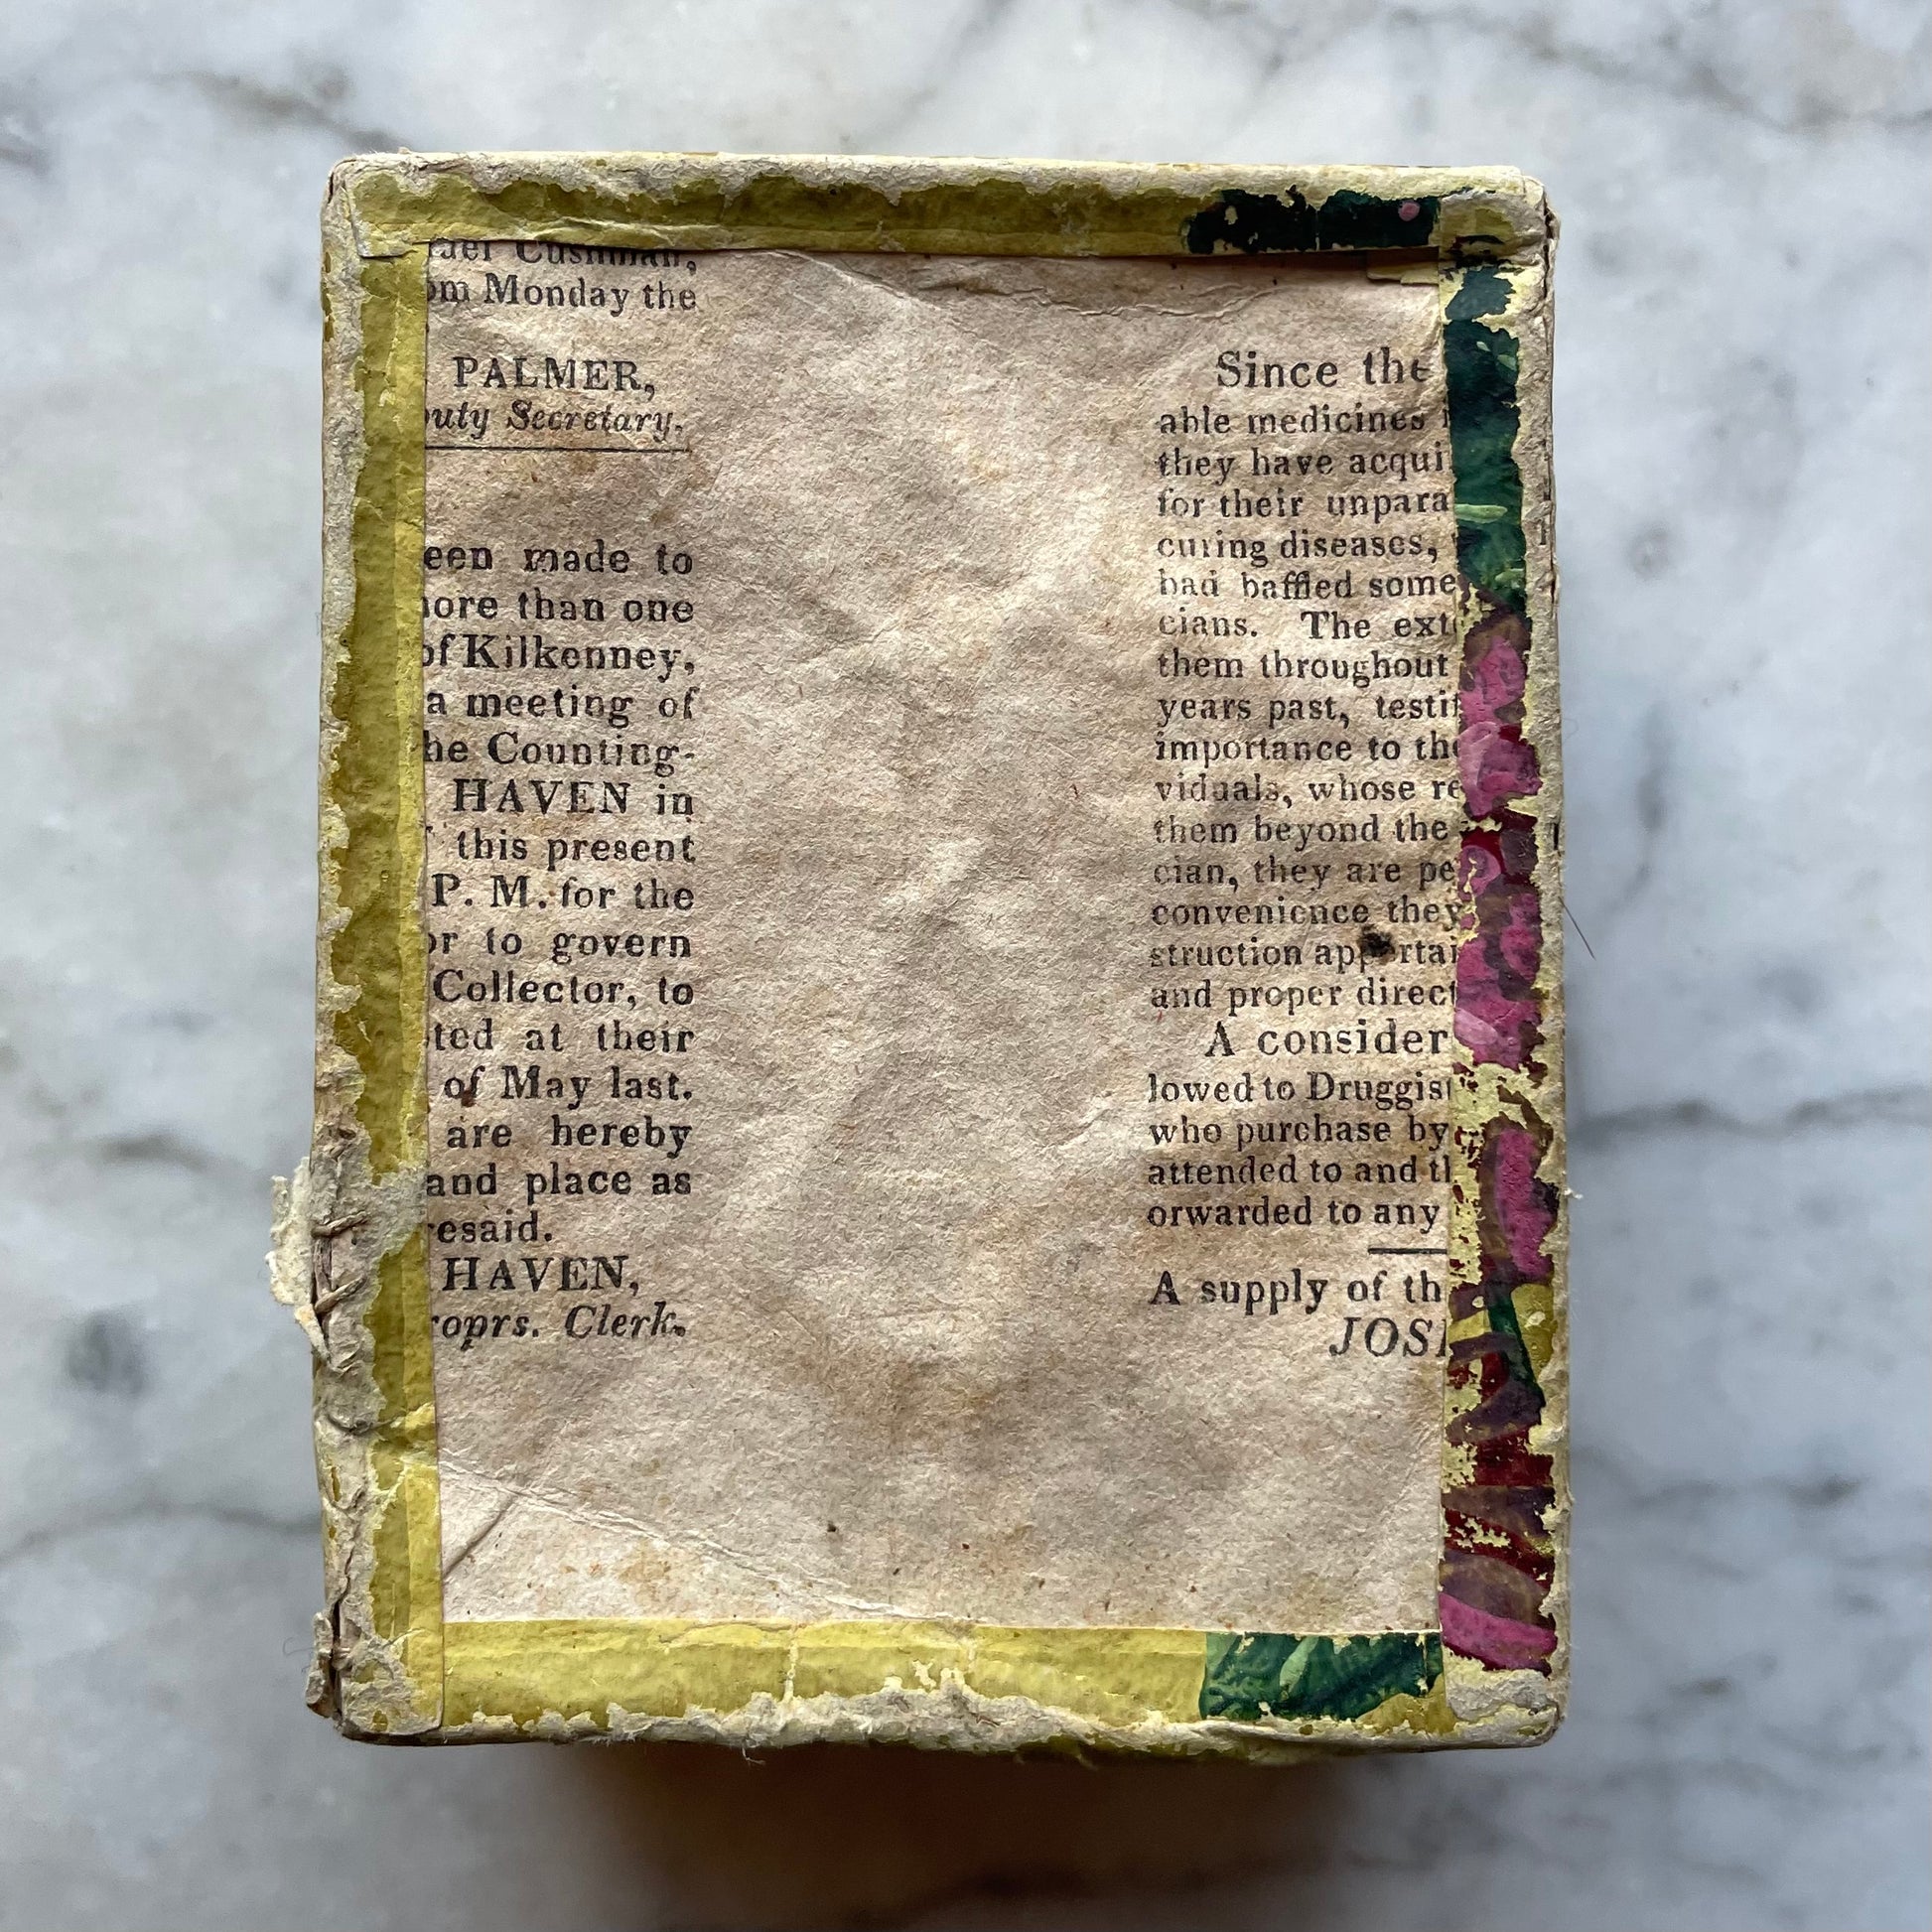 Cushman,
om Monday the
PALMER,
outy Secretary.
een made to
ore than one
of Kilkenney,
a meeting of
he Counting-
HAVEN in
this present
P. M. for the
or to govern
Collector, to
ted at their
of May last.
are hereby
and place as
resaid.
HAVEN,
roprs. Clerk.
Since the
able medicines
they have acqui
for their unpara
curing diseases,
had baffled some
cians. The exte
them throughout
years past, testif
importance to the
viduals, whose re
them beyond the
cian, they are pe
convenience they
struction appertai
and proper direct
A consider
lowed to Druggist
who purchase by
attended to and
orwarded to any
A supply of th
JOS